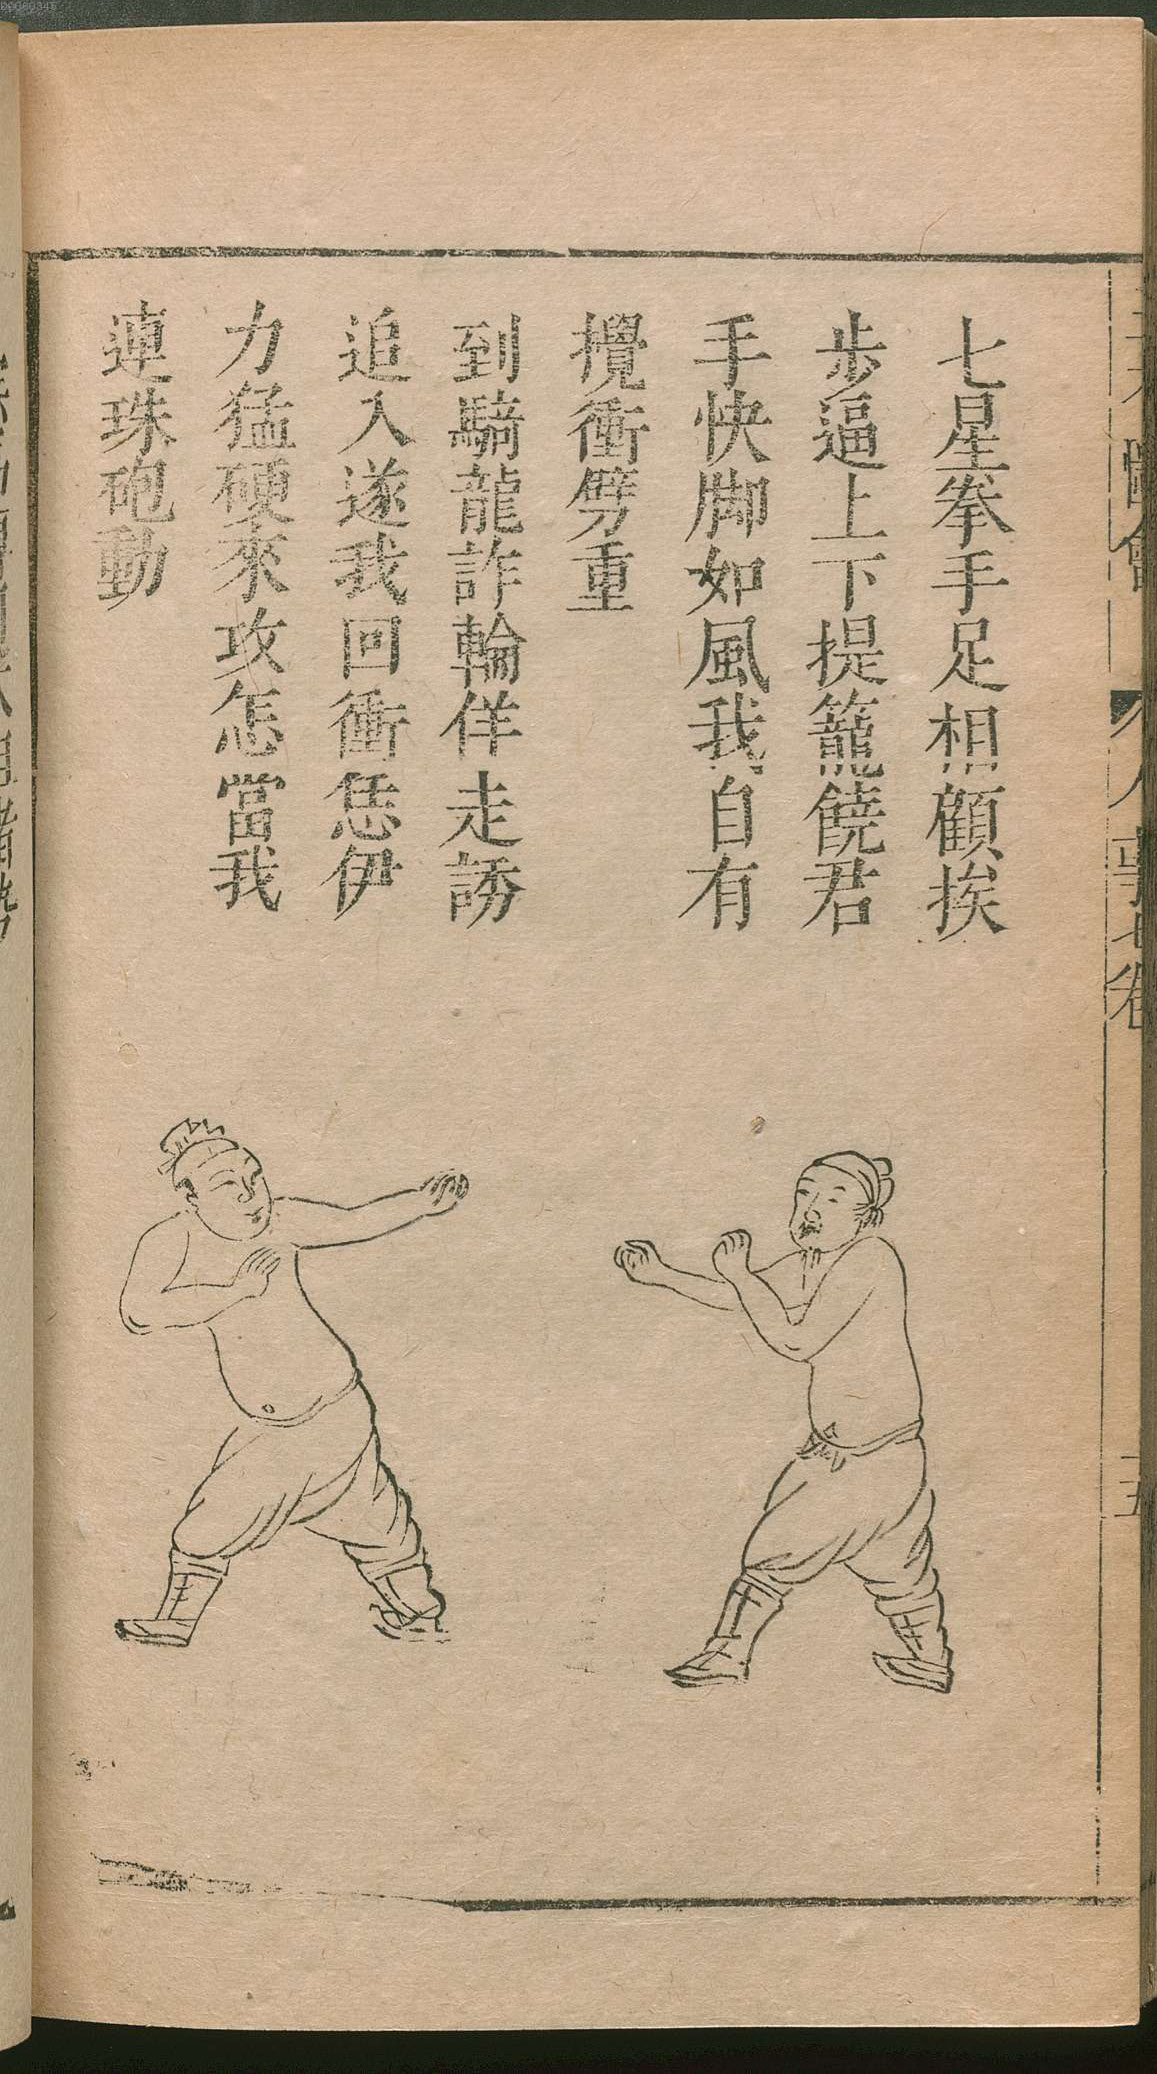 七星拳手足相顧挨
步逼上下提籠饒君
手快脚如風我自有
攪衝劈重
到騎龍詐輪佯走誘
追入遂我回衝恁伊
力猛硬來攻怎當我
連珠砲動
圖會
人事七卷
五
00060345